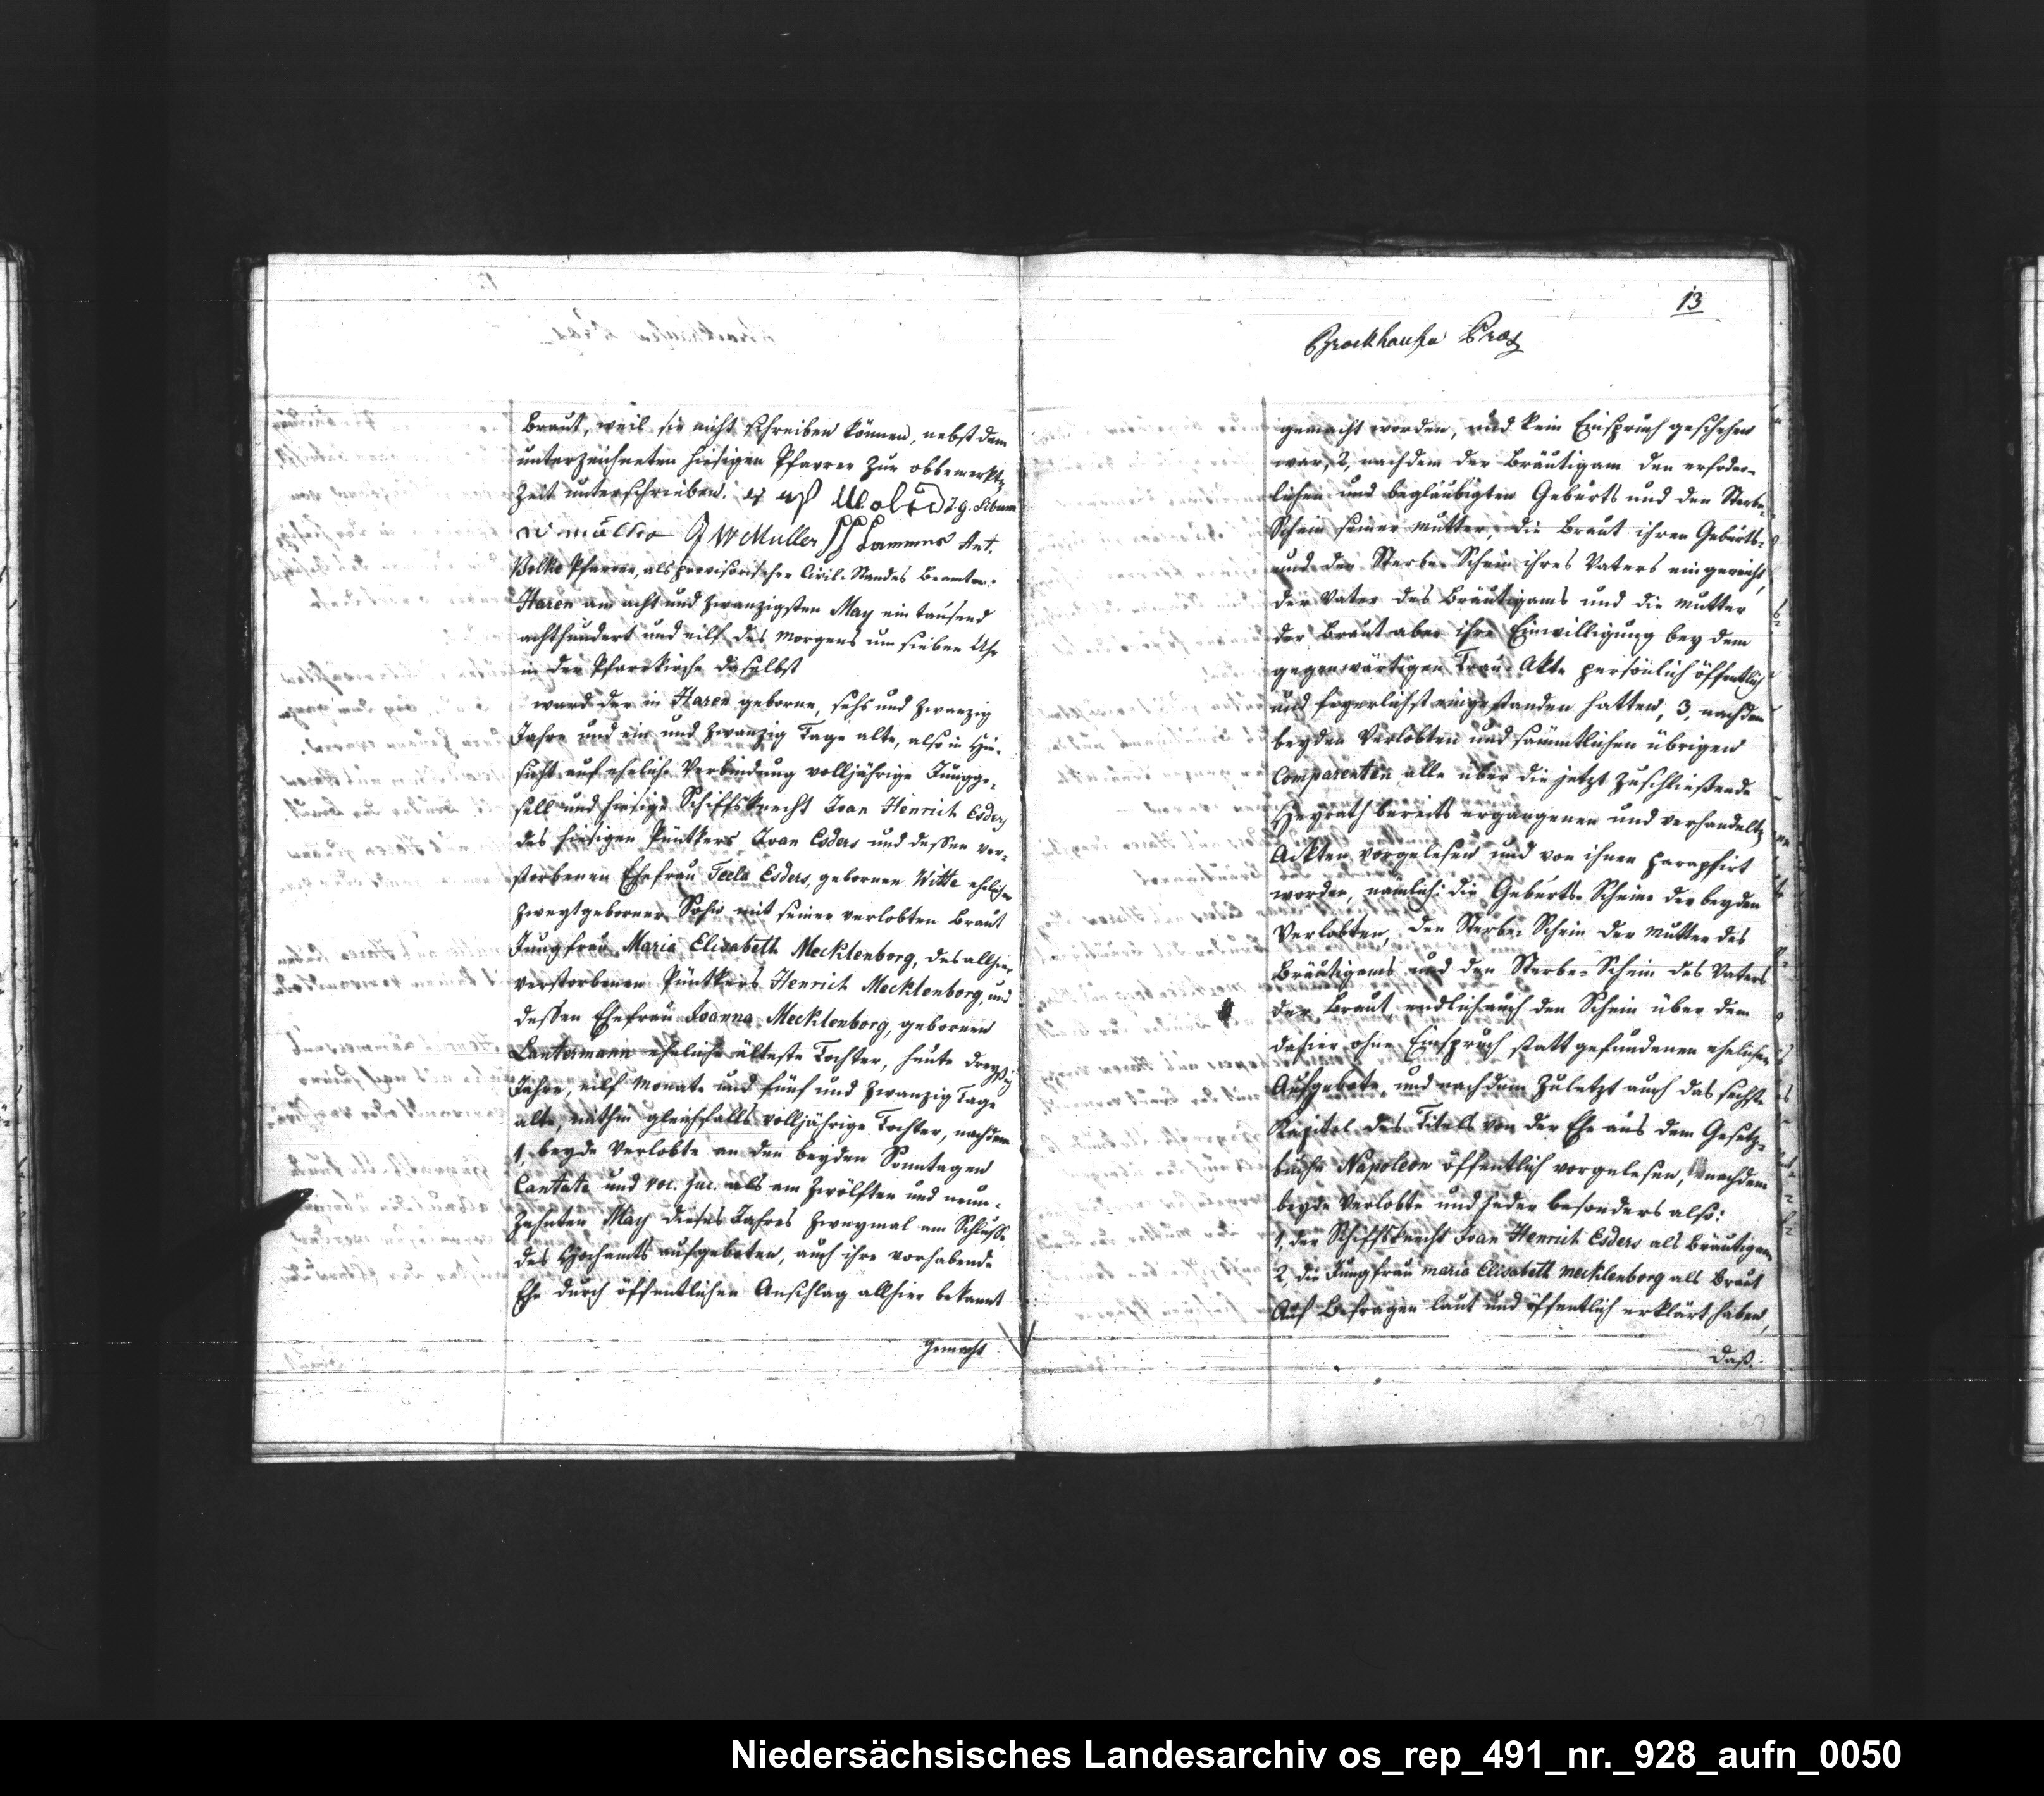 Braut, weil sie nicht schreiben können, nebst dem
unterzeichneten hiesigen Pfarrer zur obbemerkten
Zeit unterschrieben.
J W Muller Lammers Ant.
Pfarrer, als provisorischer Civil-Standes Beamter.
Haren am acht und zwanzigsten May ein tausend
achthundert und eilf des Morgens um sieben Uhr
in der Pfarrkirche daselbst
ward der in Haren geborne, sechs und zwanzig
Jahre und ein und zwanzig Tage alte, also in Hin-
sicht auf eheliche Verbindung volljährige Jungge-
sell und hiesige Schiffsknecht Joan Henrich Esders
des hiesigen Püntkers Joan Esders und dessen ver-
storbenen Ehefrau Teela Esders, gebornen Witte ehelicher
zweytgeborner Sohn mit seiner verlobten Braut
Jungfrau Maria Elisabeth Mecklenborg, des allhier
verstorbenen Püntkers Henrich Mecklenborg, und
dessen Ehefrau Joanna Mecklenborg, gebornen
Lantermann eheliche älteste Tochter, heute dreyßig
Jahre, eilf Monate und fünf und zwanzig Tage
alte, mithin gleichfalls volljährige Tochter, nachdem
1, beyde Verlobte an den beyden Sonntagen
Cantate und voc. juc. als am zwölften und neun-
zehnten May dieses Jahres zweymal am Schlusse
des Hochamts aufgeboten, auch ihre vorhabende
Ehe durch öffentlichen Anschlag allhier bekannt
gemacht
13
gemacht worden, und kein Einspruch geschehen
war, 2, nachdem der Bräutigam den erfoder-
lichen und beglaubigten Geburts und den Sterbe-
Schein seiner Mutter, die Braut ihren Geburts-
und den Sterbe-Schein ihres Vaters eingereicht,
der Vater des Bräutigams und die Mutter
der Braut aber ihre Einwilligung bey dem
gegenwärtigen Trau-Akte persönlich öffentlich
und feyerlichst eingestanden hatten, 3, nachdem
beyden Verlobten und sämmtlichen übrigen
Comparenten alle über die jetzt zuschließende
Heyrath bereits ergangenen und verhandelten
Ackten vorgelesen und von ihnen paraphirt
worden, nämlich: die Geburts-Scheine der beyden
Verlobten, den Sterbe-Schein der Mutter des
Bräutigams und den Sterbe-Schein des Vaters
der Braut, endlich auch den Schein über dem
dahier ohne Einspruch statt gefundenen ehelichen
Aufgebote, und nachdem zuletzt auch das sechste
Kapitel des Titels von der Ehe aus dem Gesetz-
buche Napoleon öffentlich vorgelesen, nachdem
beyde Verlobte und jeder besonders also:
1, der Schiffsknecht Joan Henrich Esders als Bräutigam
2, die Jungfrau Maria Elisabeth Mecklenborg als Braut
Auf Befragen laut und öffentlich erklärt haben,
daß
Niedersächsisches Landesarchiv os_rep_491_nr._928_aufn_0050